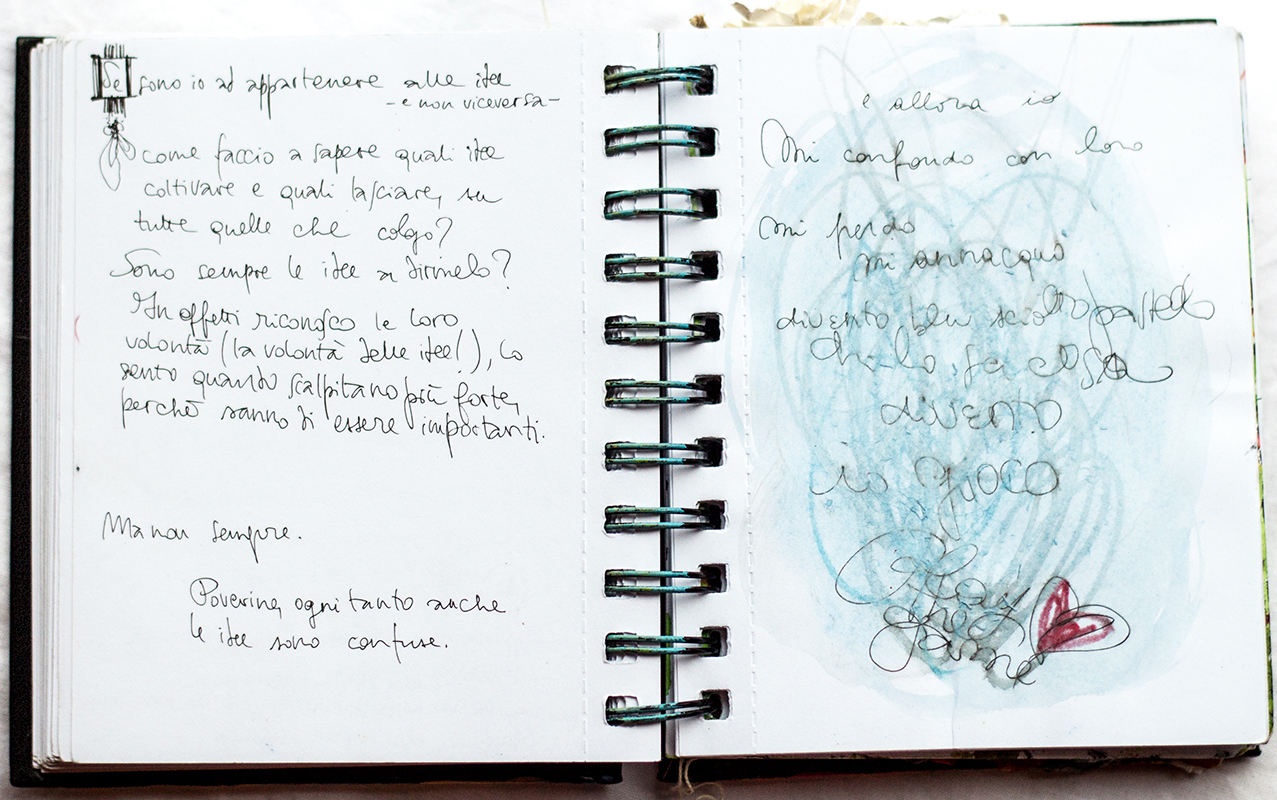 Se sono io ad appartenere alle idee
- e non viceversa -
come faccio a sapere quali idee
coltivare e quali lasciare, su
tutte quelle che colgo?
Sono sempre le idee a dirimelo?
In effetti riconosco le loro
volontà (la volontà delle idee!), lo
sento quando scalpitano più forte,
perché sanno di essere importanti.
Ma non sempre.
Poverine, ogni tanto anche
le idee sono confuse.
e allora io
Mi confondo con loro
mi perdo
mi annacquo
divento blu sciolto pastello
chi lo sa cosa
divento
io gioco
Play
the
Game